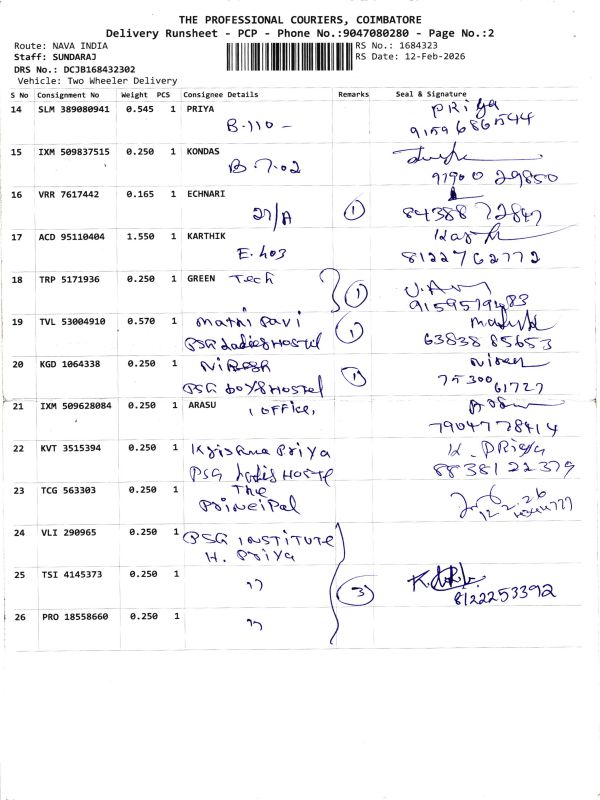 THE PROFESSIONAL COURIERS, COIMBATORE
Delivery Runsheet - PCP - Phone No.:9047080280 - Page No.:2
Route: NAVA INDIA
Staff: SUNDARAJ
DRS No.: DCJB168432302
Vehicle: Two Wheeler Delivery
RS No.: 1684323
RS Date: 12-Feb-2026
S No Consignment No Weight PCS Consignee Details Remarks Seal & Signature
14 SLM 389080941 0.545 1 PRIYA PRiya
B-110 - 9159686544
15 IXM 509837515 0.250 1 KONDAS
B-7-02 97900 29850
16 VRR 7617442 0.165 1 ECHNARI
27/A 1 84388 72847
17 ACD 95110404 1.550 1 KARTHIK
E.403 8122762772
18 TRP 5171936 0.250 1 GREEN Tech
1 9159579483
19 TVL 53004910 0.570 1
PSG Ladies Hostel 1 63838 85653
20 KGD 1064338 0.250 1
PSG boys Hostel 1 75300 61727
21 IXM 509628084 0.250 1 ARASU office,
7904778414
22 KVT 3515394 0.250 1 Krishna Priya K. PRiya
PSG Ladies Hostel 88381 22379
23 TCG 563303 0.250 1 The
Principal 12.2.26
24 VLI 290965 0.250 1 PSG INSTITUTE
H. Priya
25 TSI 4145373 0.250 1 " 3
8122253392
26 PRO 18558660 0.250 1 "